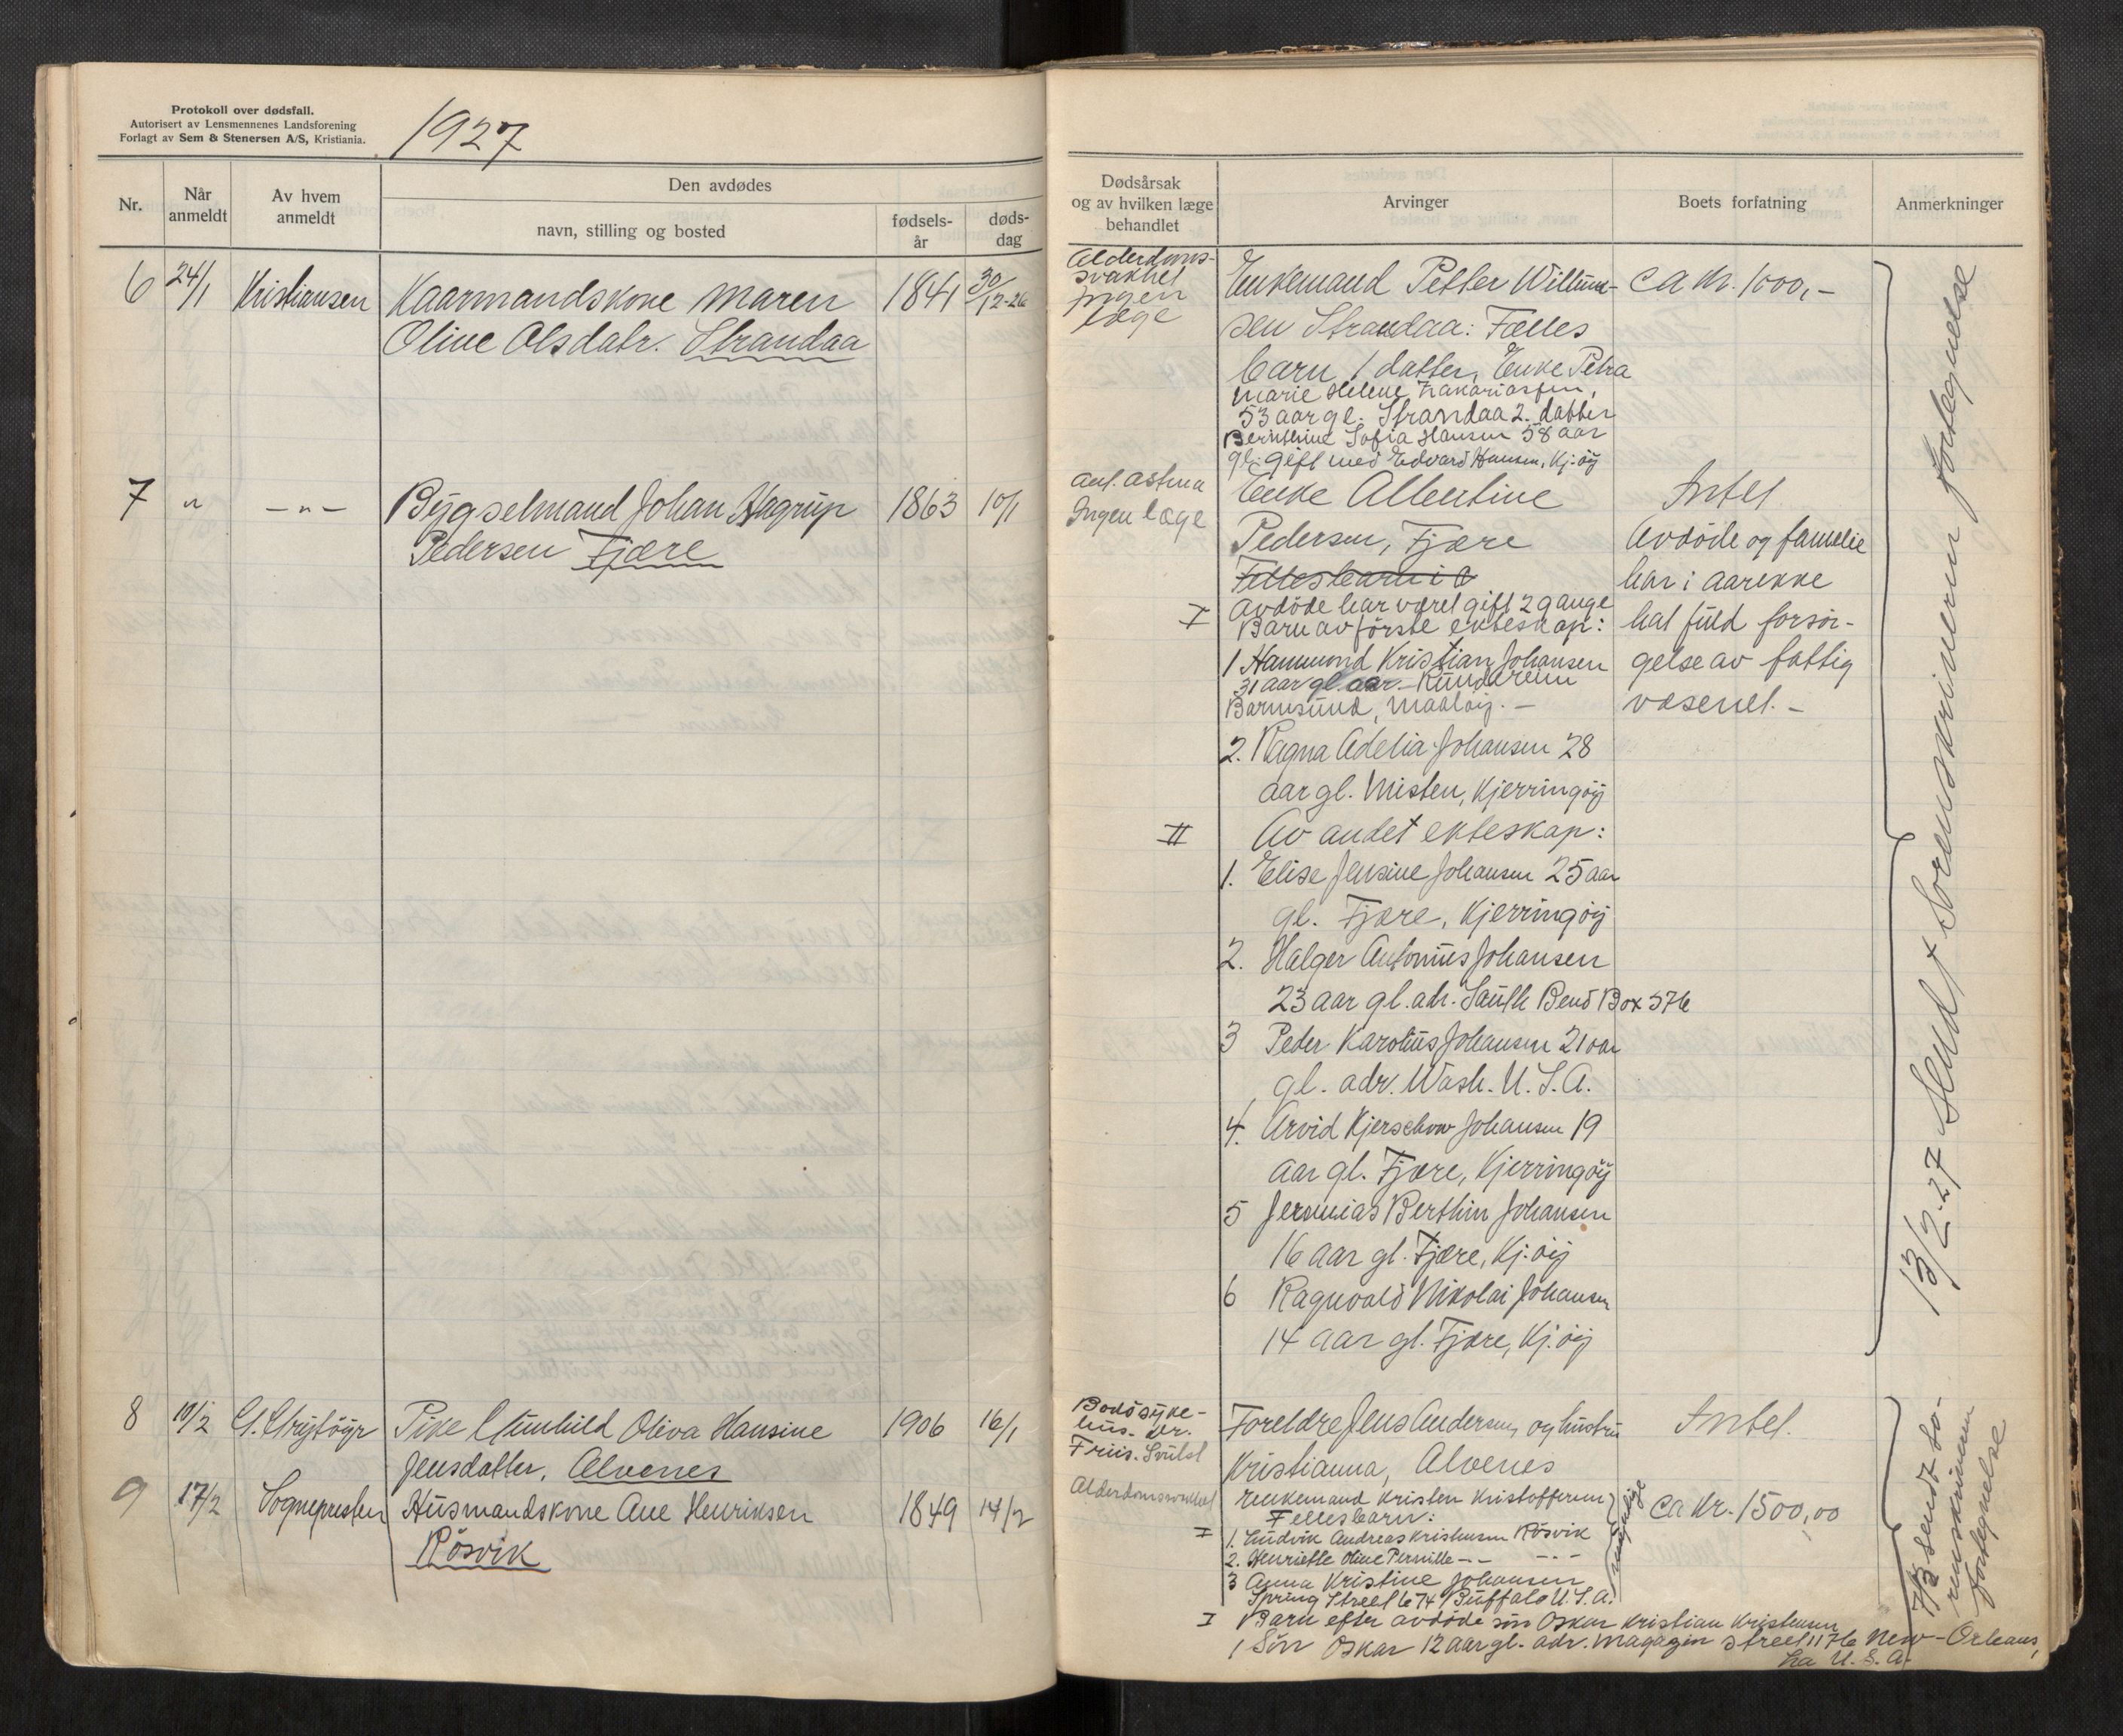 Protokoll over dødsfall.
Autorisert av Lensmennenes Landsforening
Forlagt av Sem & Stenersen A/S, Kristiania.
1927
Nr.
Når anmeldt
Av hvem anmeldt
Den avdødes
navn, stilling og bosted
fødsels-
år
døds-
dag
6 24/1 Kristiansen Kaarmandskone Maren 1841 30/12-26
Olive Olsdatr. Strandaa
7 " -"- Bygselmand Johan Hagrup 1863 10/1
Pedersen Fjære
8 10/2 Pike Gunhild Oliva Hansine 1906 16/1
Jensdatter, Alvenes
9 17/2 Sognepresten Husmandskone Ane Henriksen 1849 14/2
Røsvik
Dødsårsak
og av hvilken læge
behandlet
Arvinger
Boets forfatning
Anmerkninger
Alderdoms-
svakhet
Ingen
læge
Enkemand Petter Willum-
sen Strandaa: Fælles
barn 1 datter, Enke Petra
Marie Helene Zakariassen,
53 aar gl. Strandaa 2. datter
Bernthine Sofia Hansen 58 aar
gl. gift med Edvard Hansen, Kj.øy
ca kr. 1000,-
Ant. astma
Ingen læge
Enke Albertine
Pedersen, Fjære
Fellesbarn i
I Avdøde har været gift 2 gange
Barn av første ekteskap:
1 Hammond Kristian Johansen
31 aar gl. adr.
Barmsund, Maaløy. -
2. Ragna Adelia Johansen 28
aar gl. Misten, Kjerringøy
II Av andet ekteskap:
1. Elise Jensine Johansen 25 aar
gl. Fjære, Kjerringøy
2. Halger Antonius Johansen
23 aar gl. adr. South Bend Box 576
3 Peder Karolius Johansen 21 aar
gl. adr. Wash. U.S.A.
4. Arvid Kjerschow Johansen 19
aar gl. Fjære, Kjerringøy
5 Jeremias Berthin Johansen
16 aar gl. Fjære, Kj.øy
6 Ragnvald Nikolai Johansen
14 aar gl. Fjære, Kj.øy
Intet.
Avdøde og familie
har i aarekke
hat fuld forsør-
gelse av fattig
væsenet. -
13/2-27 Sendt Sorenskriveren fortegnelse
Bodø syke-
hus. Dr.
Friis. Svulst
Foreldre Jens Andersen og hustru
Kristianna, Alvenes
Intet.
Alderdomssvakhet
Enkemand Kristen Kristoffersen
Fellesbarn:
I 1. Ludvik Andreas Kristensen Røsvik
2. Henriette Oline Pernille -"- -"-
3 Anna Kristine Johansen
Spring Street 674 Buffalo U.S.A.
myndige
I Barn efter avdøde søn Oskar Kristian Kristensen
1 Søn Oskar 12 aar gl. adr. Magazin street 1176 New-Orleans,
La U.S.A.
ca kr. 1500,00
7/3 Sendt So-
renskriveren
fortegnelse